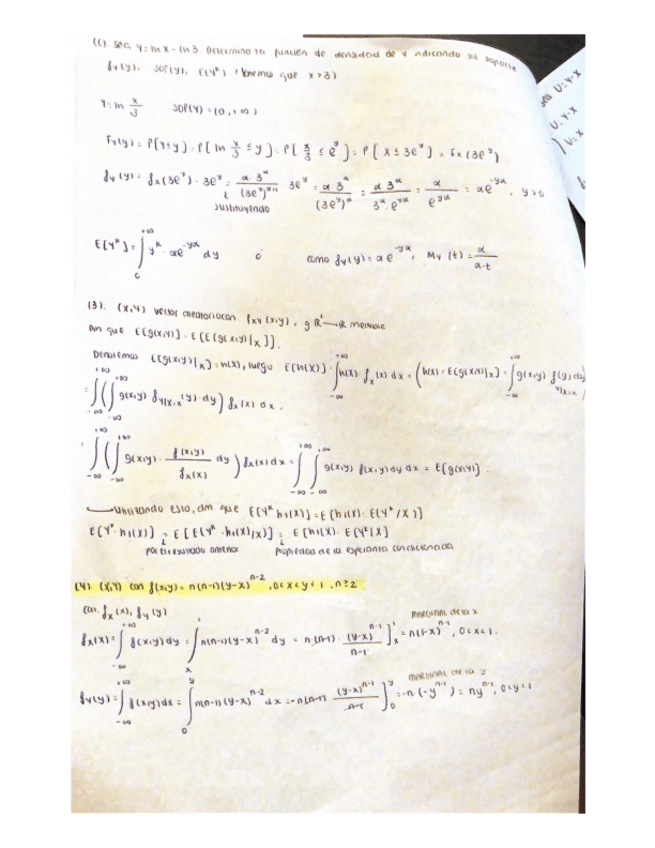 (c). Sea Y = ln X - ln 3. Determina la función de densidad de Y indicando su soporte
f_Y(y), SOP(Y), E(Y^k) (tenemos que x>3)
Y = ln x/3    SOP(Y) = (0, +∞)
F_Y(y) = P[Y≤y] = P[ln x/3 ≤ y] = P[x/3 ≤ e^y] = P[X ≤ 3e^y] = F_X(3e^y)
f_Y(y) = f_X(3e^y) · 3e^y = α·3^α/(3e^y)^(α+1) 3e^y = α·3^α/(3e^y)^α = α 3^α/3^α·e^(yα) = α/e^(yα) = αe^(-yα), y>0
sustituyendo
E[Y^k] = ∫_0^{+∞} y^k · αe^(-yα) dy    ó    como f_Y(y) = αe^(-yα), M_Y(t) = α/(α-t)
(3). (X,Y) vector aleatorio con f_XY(x,y), g ℝ² → ℝ medible
Dm que E[g(X,Y)] = E[E[g(X,Y)|X]].
Denotemos E[g(X,Y)|X] = h(X), luego E[h(X)] = ∫_{-∞}^{+∞} h(x) f_X(x) dx = (h(x) = E[g(X,Y)|X] = ∫_{-∞}^{+∞} g(x,y) f(y) dy
Y|X=x
= ∫_{-∞}^{+∞} (∫_{-∞}^{+∞} g(x,y) f_{Y|X=x}(y) dy) f_X(x) dx.
= ∫_{-∞}^{+∞} (∫_{-∞}^{+∞} g(x,y) · f(x,y)/f_X(x) dy) f_X(x) dx = ∫_{-∞}^{+∞} ∫_{-∞}^{+∞} g(x,y) f(x,y) dy dx = E[g(X,Y)].
Utilizando esto, dm que E[Y^k h_1(X)] = E[h_1(X) · E(Y^k/X)]
E[Y^k · h_1(X)] = E[E(Y^k · h_1(X)/X)] = E[h_1(X) · E(Y^k|X]
por el resultado anterior    propiedad de la esperanza condicionada
(4) (X,Y) con f(x,y) = n(n-1)(y-x)^(n-2), 0<x<y<1, n≥2
Cal. f_X(x), f_Y(y)
marginal de la x
f_X(x) = ∫_{-∞}^{+∞} f(x,y) dy = ∫_x^1 n(n-1)(y-x)^(n-2) dy = n(n-1) · (y-x)^(n-1)/(n-1) ]_x^1 = n(1-x)^(n-1), 0<x<1.
marginal de la y
f_Y(y) = ∫_{-∞}^{+∞} f(x,y) dx = ∫_0^y n(n-1)(y-x)^(n-2) dx = -n(n-1) (y-x)^(n-1)/(n-1) ]_0^y = -n(-y^(n-1)) = ny^(n-1), 0<y<1
U=Y-X
U=Y-X
V=X